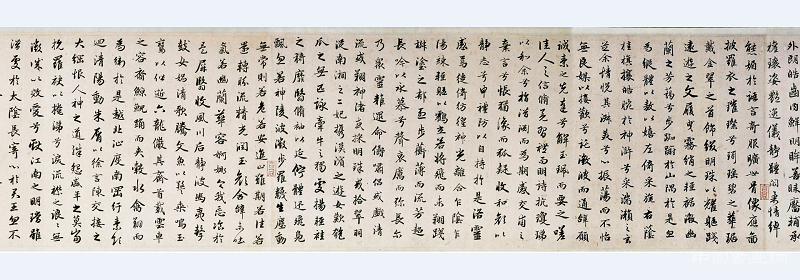 外朗皓齒內鮮明眸善睞靨輔承
權瓌姿豔逸儀靜體閑柔情綽
態媚於語言奇服曠世骨像應圖
披羅衣之璀璨兮珥瑤碧之華琚
戴金翠之首飾綴明珠以耀軀踐
遠遊之文履曳霧綃之輕裾微幽
蘭之芳藹兮步踟躕於山隅於是忽
焉縱體以遨以嬉左倚采旄右蔭
桂旗攘皓腕於神滸兮采湍瀨之玄
芝余情悅其淑美兮心振蕩而不怡
無良媒以接歡兮託微波而通辭願
誠素之先達兮解玉珮而要之嗟
佳人之信脩羌習禮而明詩抗瓊珶
以和余兮指潛淵而為期感交甫
棄言兮悵猶豫而狐疑收和顏以
靜志兮申禮防以自持於是洛靈
感焉徙倚彷徨神光離合乍陰乍
陽竦輕軀以鶴立若將飛而未翔踐
椒塗之郁烈步蘅薄而流芳超
長吟以永慕兮聲哀厲而彌長爾
乃眾靈雜遝命儔嘯侶或戲清
流或翔神渚或采明珠或拾翠羽
從南湘之二妃攜漢濱之遊女歎匏
瓜之無匹詠牽牛之獨處揚輕袿
之猗靡翳脩袖以延佇體迅飛鳧
飄忽若神陵波微步羅襪生塵動
無常則若危若安進止難期若往若
還轉眄流精光潤玉顏含辭未吐
氣若幽蘭華容婀娜令我忘飡於
是屏翳收風川后靜波馮夷擊
鼓女媧清歌騰文魚以警乘鳴玉
鸞以偕逝六龍儼其齊首載雲車
之容裔鯨鯢踊而夾轂水禽翔而
為衛於是越北沚度南岡紆素領
迴清陽動朱脣以徐言陳交接之
大綱恨人神之道殊怨盛年之莫當
抗羅袂以掩涕兮淚流襟之浪浪無
微情以效愛兮獻江南之明璫雖
潛處於太陰長寄心於君王忽不